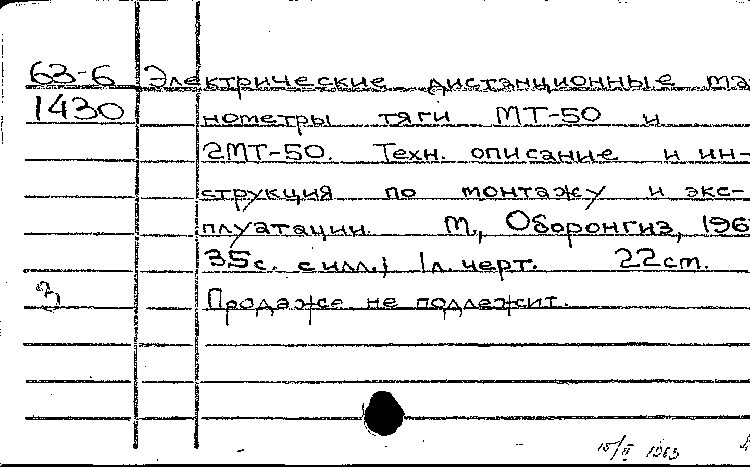 63-6 Электрические дистанционные ма
1430 нометры тяги МТ-50 и
2МТ-50. Техн. описание и ин-
струкция по монтажу и экс-
плуатации. М., Оборонгиз, 196
35с. с илл.; 1л. черт. 22см.
Продаже не подлежит.
15/II 1963